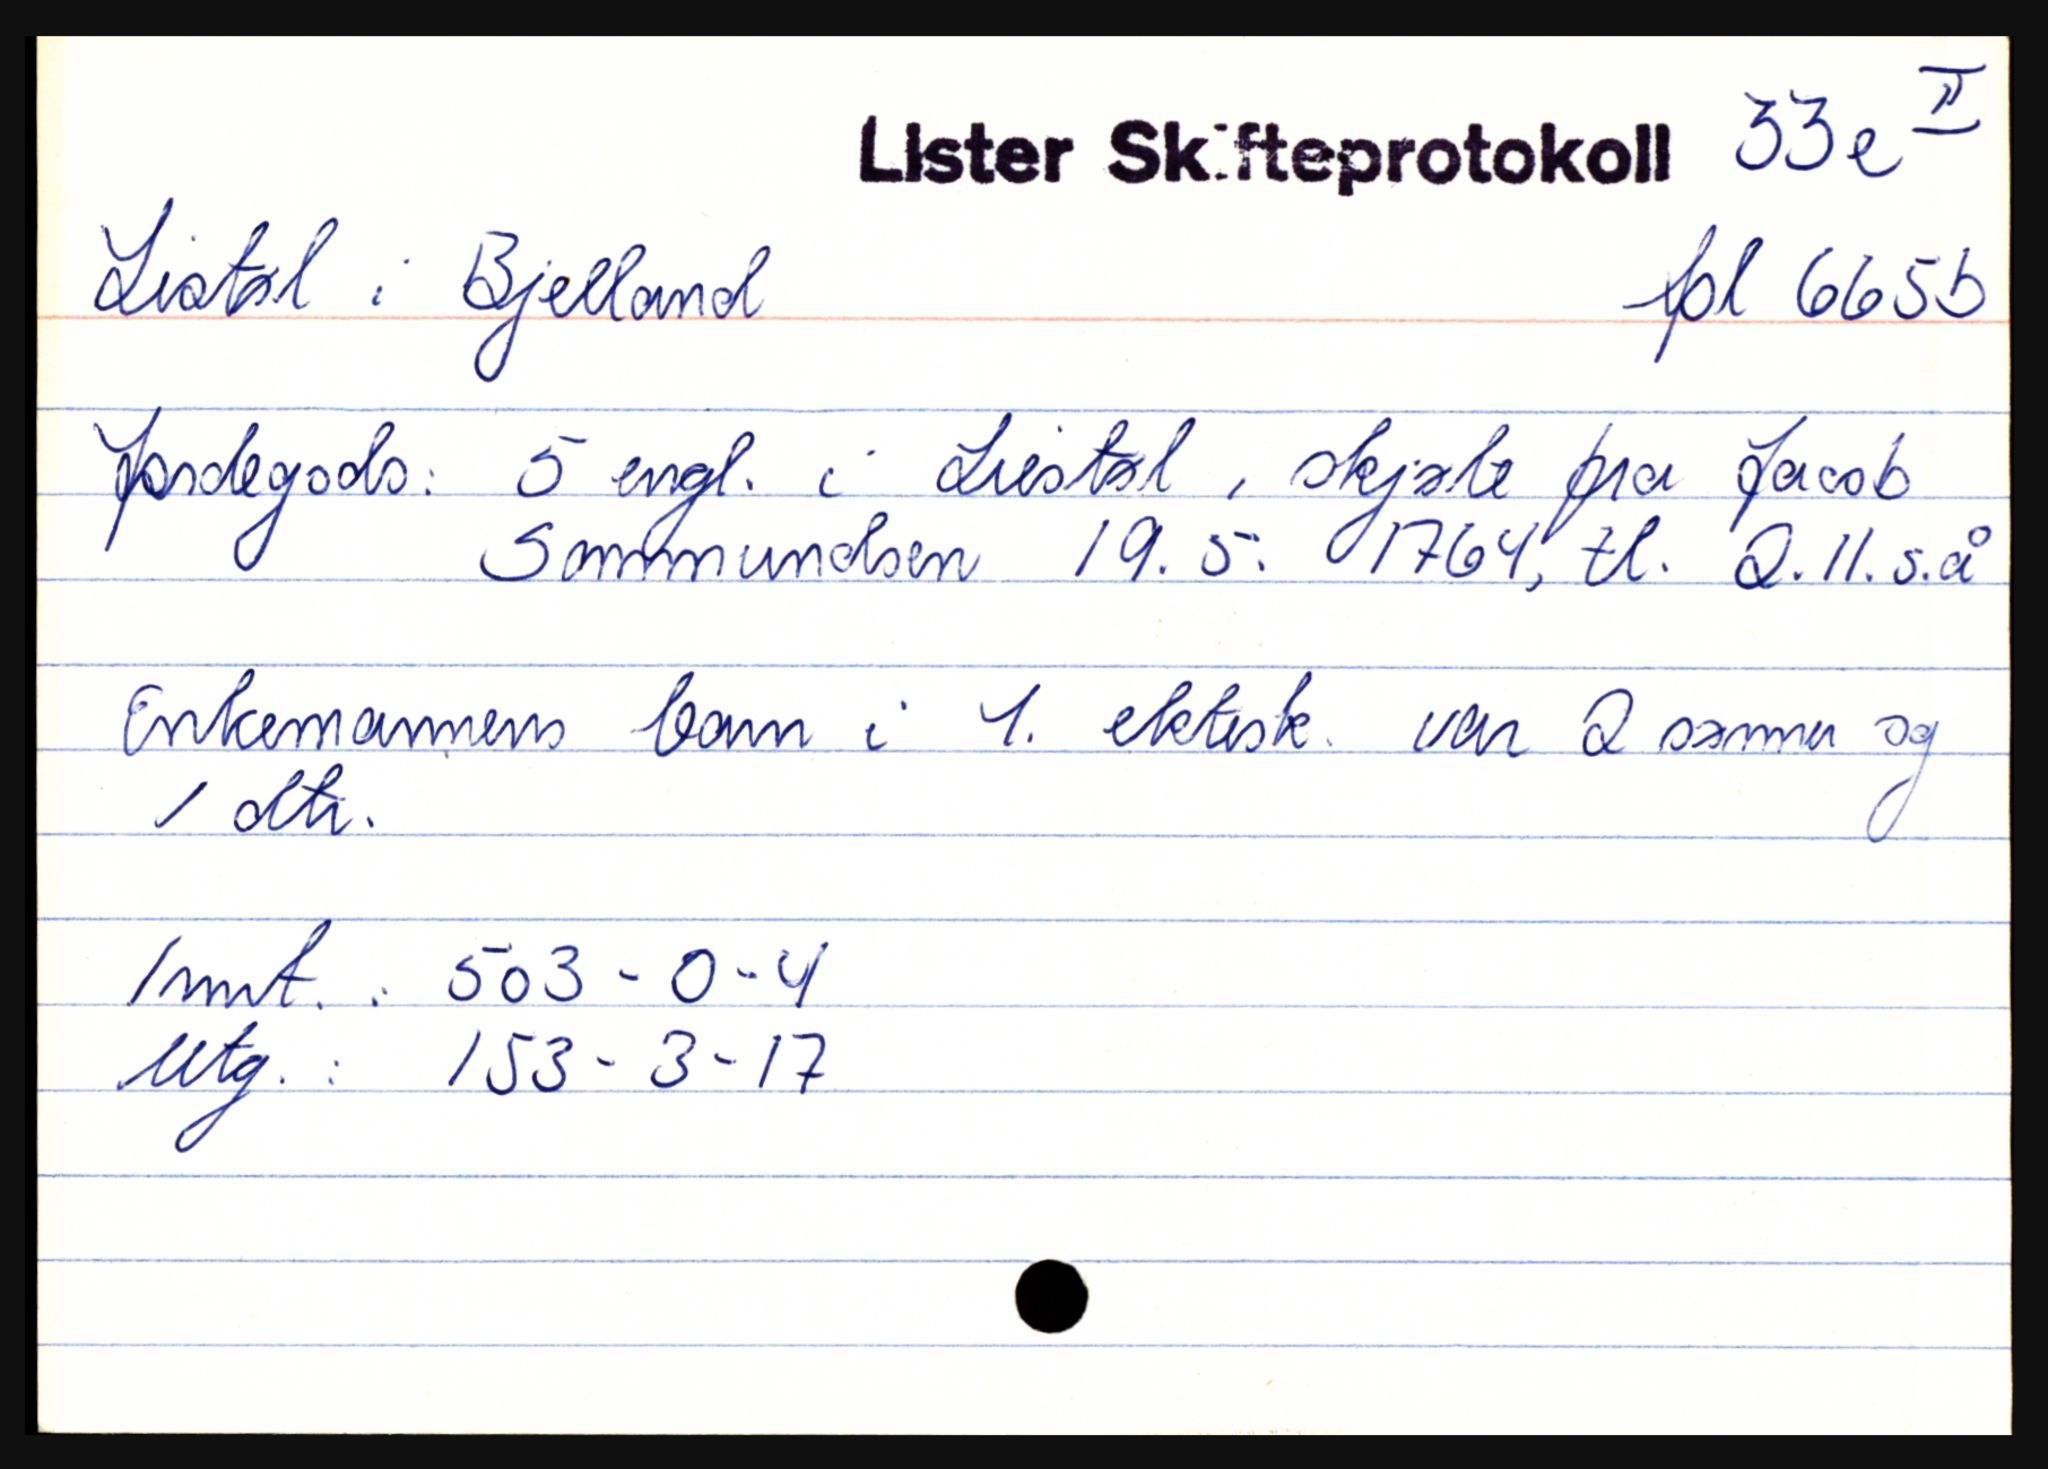 Lister Skifteprotokoll 33e II
Listøl i Bjelland fol 665b
Jordegods: 5 engl. i Liestøl, skjøte fra Jacob
Sammundsen 19.5. 1764, tl. 2.11. s.å
Enkemannens barn i 1. ektesk. var 2 sønner og
1 dtr.
Innt. : 503-0-4
Utg. : 153-3-17